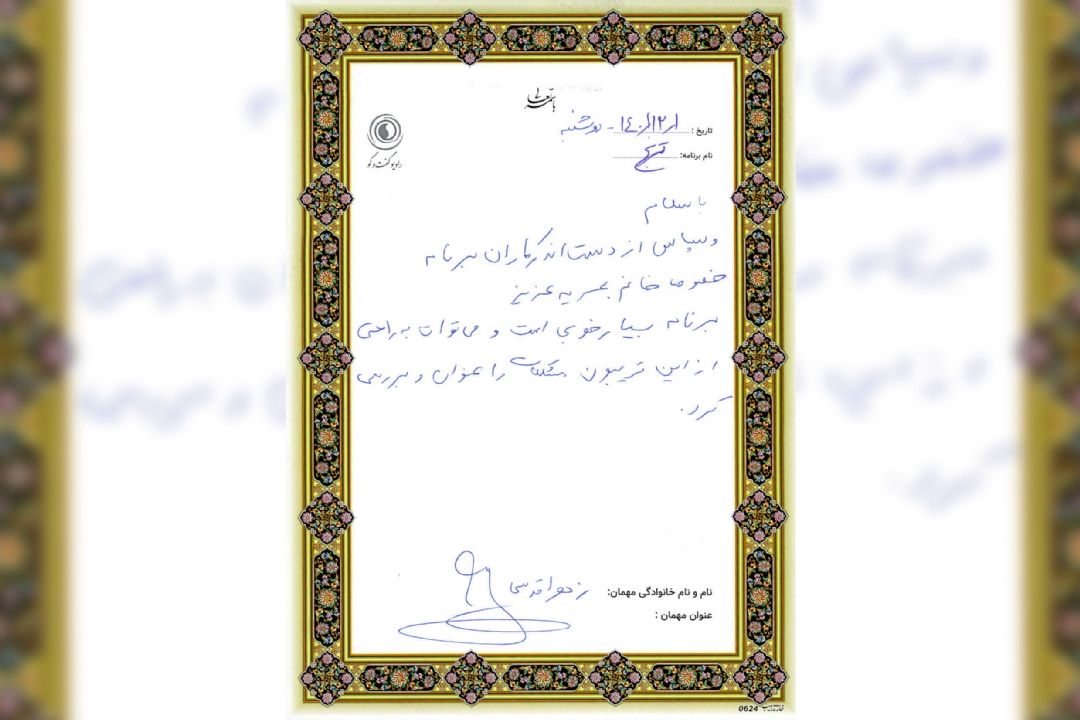 باسمه تعالی
رادیو گفت و گو
تاریخ : ۱۴۰۱/۱۲/۱ - دوشنبه
نام برنامه:
با سلام
و سپاس از دست‌اندرکاران برنامه
خصوصا خانم عزیز
برنامه بسیار خوبی است و می‌توان به راحتی
از این تریبون مشکلات را عنوان و بررسی
کرد.
نام و نام خانوادگی مهمان: زهرا قدسی
عنوان مهمان :
0624